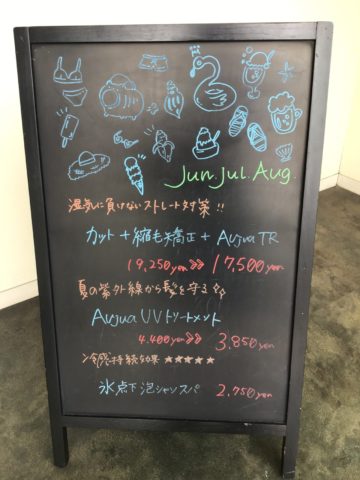 Jun Jul. Aug.
湿気に負けないストレート対策!!
カット+縮毛矯正+Aujua TR
19,250yen》》17,500yen
夏の紫外線から髪を守る☆☆
Aujua UVトリートメント
4.400yen》》3,850yen
冷感持続効果★★★★★
氷点下泡シャンスパ 2,750yen